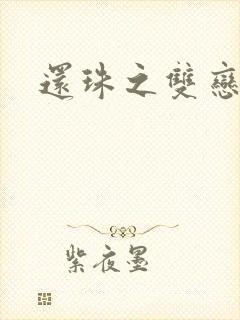 還珠之雙戀
紫夜墨